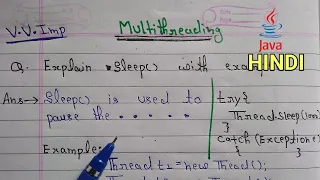 V.V.Imp
Multithreading
Java
HINDI
Q. Explain Sleep() with exam
Ans→ Sleep() is used to
pause the . . . . .
try{
Thread.Sleep(1000
}
catch (Exception e)
{ }
Example:
Thread t1 = new Thread();